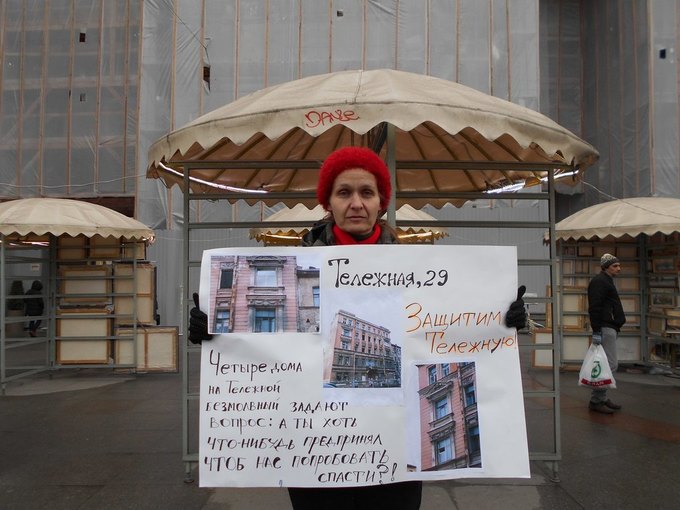 DANSE
Тележная, 29
Защитим
Тележную!
Четыре дома
на Тележной
безмолвный задают
вопрос: а ты хоть
что-нибудь предпринял
чтоб нас попробовать
спасти?!